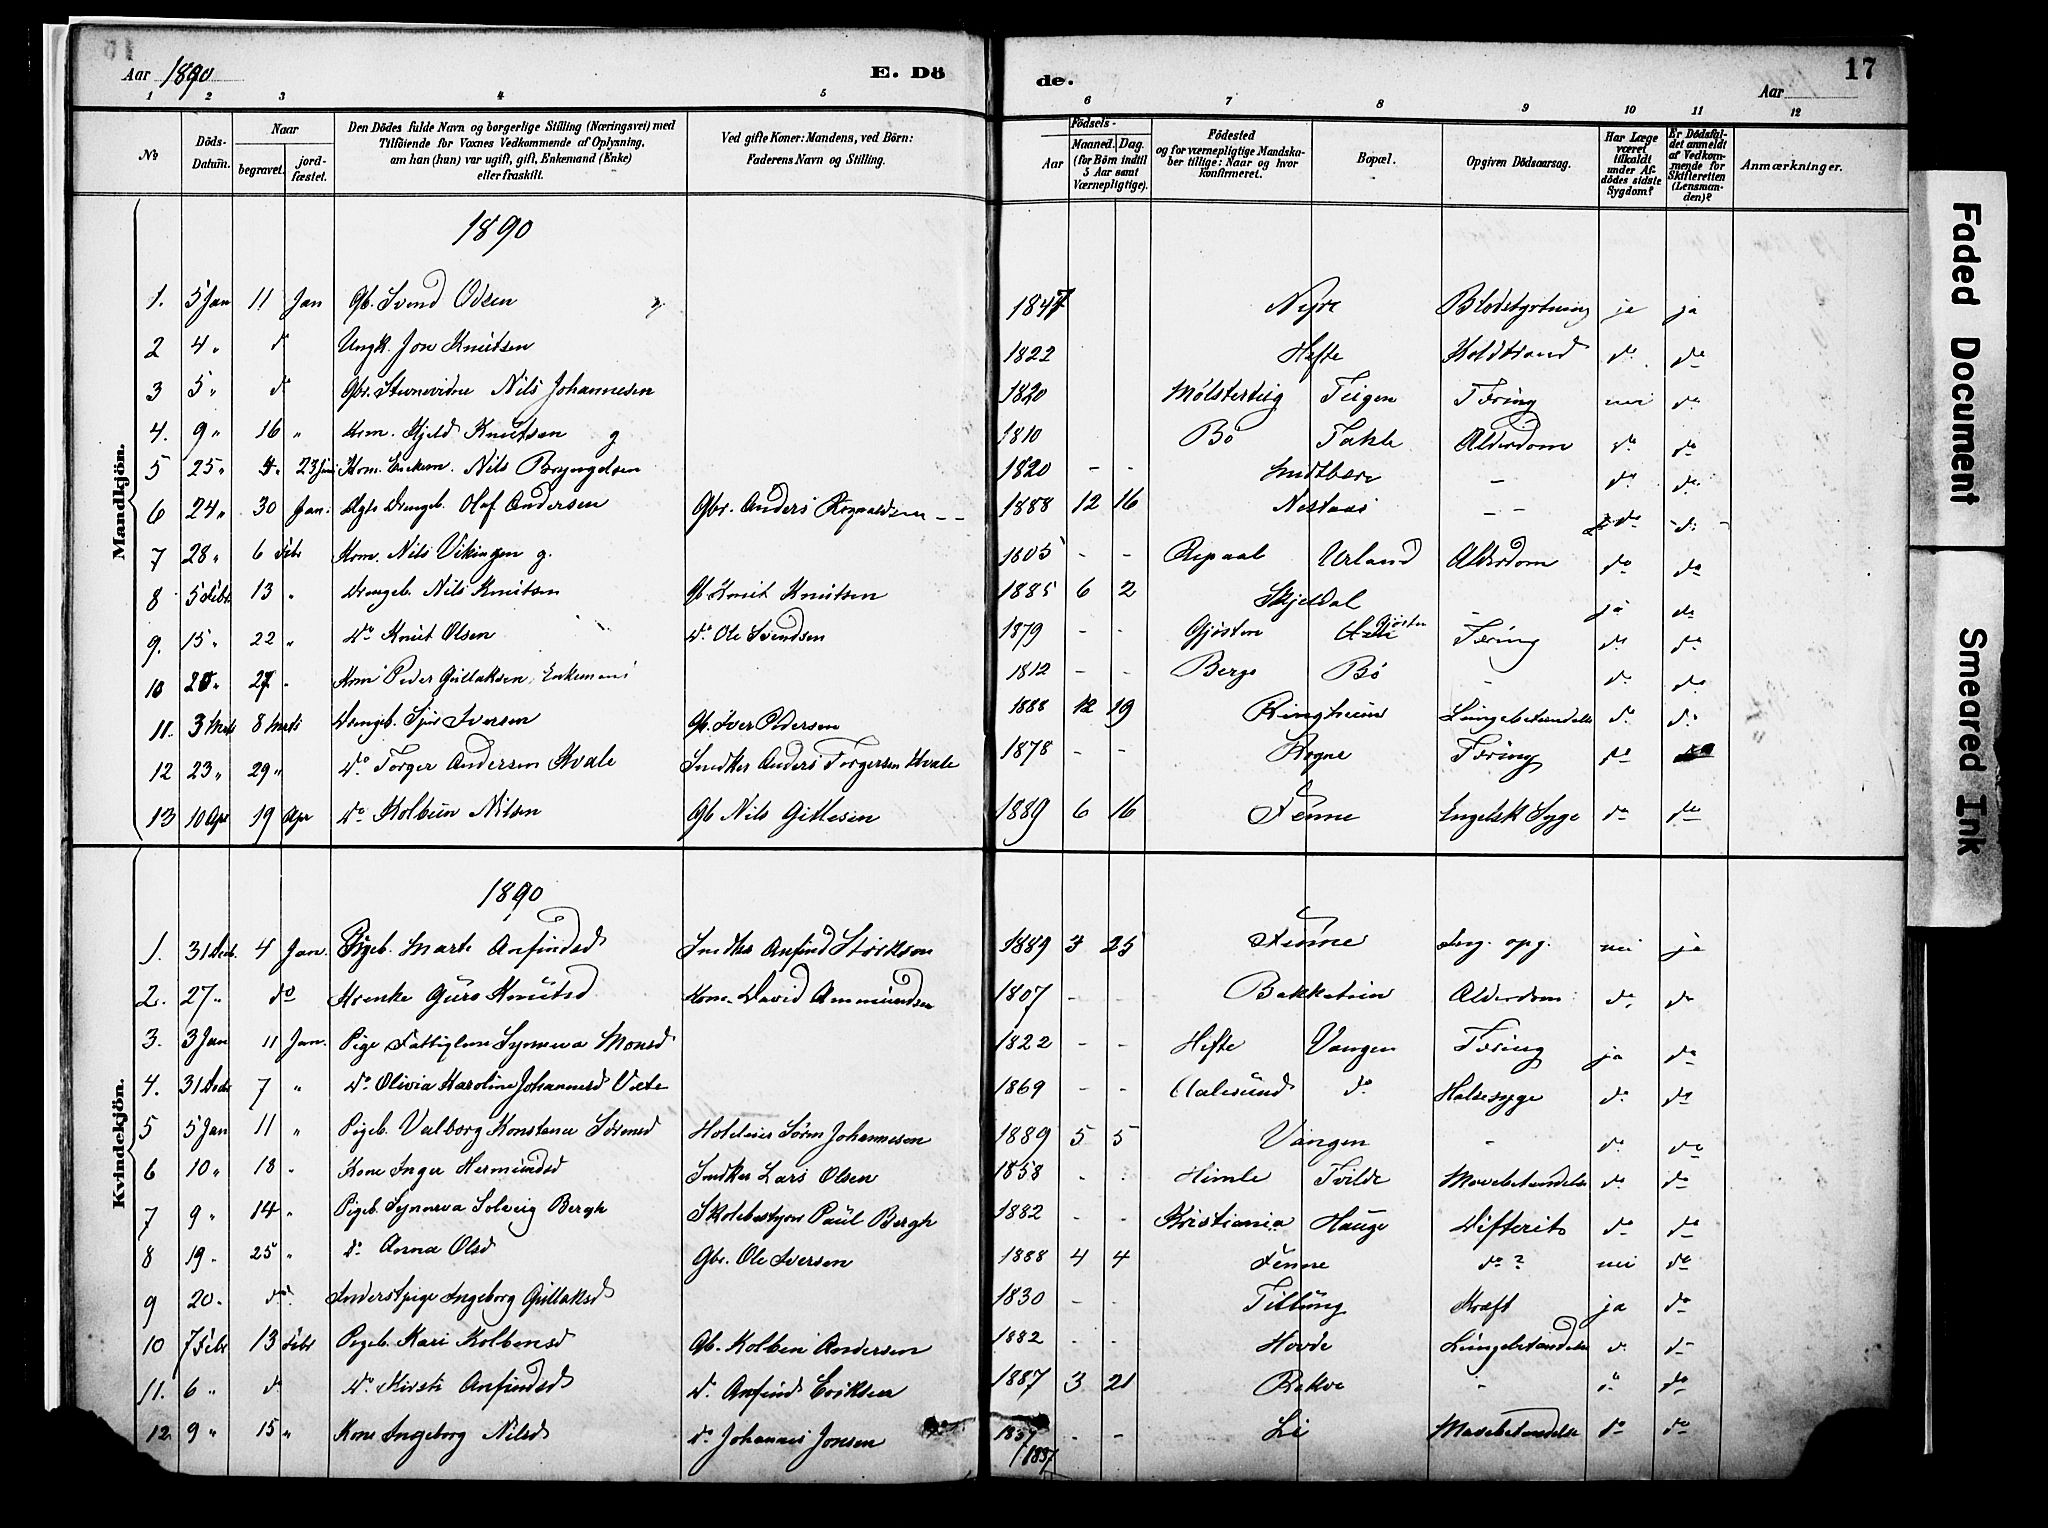 Aar 1890 E. Dö de. 17 Aar
1 2 3 4 5 6 7 8 9 10 11 12
No
Döds-Datum.
Naar begravet. jordfæstet.
Den Dödes fulde Navn og borgerlige Stilling (Næringsvei) med Tilföiende for Voxnes Vedkommende af Oplysning, om han (hun) var ugift, gift, Enkemand (Enke) eller fraskilt.
Ved gifte Koner: Mandens, ved Börn: Faderens Navn og Stilling.
Födsels- Aar Maaned. Dag. (for Börn indtil 5 Aar samt Værnepligtige).
Födested og for værnepligtige Mandskaber tillige: Naar og hvor konfirmeret.
Bopæl.
Opgiven Dödsaarsag.
Har Læge været tilkaldt under Afdödes sidste Sygdom?
Er Dödsfaldet anmeldt af Vedkommende for Skifteretten (Lensmanden)?
Anmærkninger.
Mandkjön.
1890
1. 5 Jan 11 Jan Gb. Svend Odsen 1847 Nyre Blodstyrtning ja ja
2 4 " do Ungk. Jon Knutsen 1822 Hefte Koldbrand do do
3 5 " do Gbr. Stevnevidne Nils Johannesen 1820 Mølsterteig Teigen Tæring nei do
4. 9 " 16 " Kom. Kjeld Knutsen g 1810 Bö Takle Alderdom do do
5 25 " 4 " 23 Juni Kom. Enkem. Nils Bryngelsen 1820 - - - do do
6 24 " 30 Jan. Ægte Drengeb. Olaf Andersen Gbr. Anders Rognaldsen - - 1888 12 16 Nestaas - - do do
7 28 " 6 Febr Kom. Nils Vikingsen g. 1805 - - Repaal Urland Alderdom do do
8 5 Febr 13 " Drengeb. Nils Knutsen Gb Knut Knutsen 1885 6 2 Skjeldal - ja do
9. 15 " 22 " Do Knut Olsen Do Ole Svendsen 1879 - - Gjösten Gjösten Tæring do do
10 20 " 27 " Kom Peder Gullaksen, Enkemand 1812 - - Berge Bö - do do
11. 3 Marts 8 Marts Drengeb. Sjur Iversen Gb. Iver Pedersen 1888 12 19 Ringheim Lungebetændelse do do
12 23 " 29 " Do Torger Andersen Kvale Indker Anders Torgersen Kvale 1878 - - Rogne Tæring do
13 10 Apr 19 Apr Do Kolbein Nilsen Gb Nils Gitlesen 1889 6 16 Fenne Engelsk Syge do do
Kvindekjön.
1890
1. 31 Decb. 4 Jan. Pigeb. Marta Anfindsd Indker Anfind Störksen 1889 3 25 Fenne Ing. opg. nei ja
2. 27 " do Komenke Guro Knutsd Kom. David Ammundsen 1807 - - Bakketun Alderdom do do
3. 3 Jan 11 Jan. Pige Fattiglem Synneva Monsd 1822 - - Hefte Vangen Tæring ja do
4. 31 Decbr 7 " Do Olivia Karoline Johannesd 1869 - - Aalesund do Halssyge do do
5 5 Jan 11 " Pigeb. Valborg Konstanse Sörensd Hoteleier Sörn Johannesen 1889 5 5 Vangen - do do
6 10 " 18 " Kone Inger Hermundsd Indker Lars Olsen 1858 - - Himle Tvilde Mavebetændelse do do
7 9 " 14 " Pigeb. Synneva Solveig Bergh Skolebestyrer Paul Bergh 1882 - - Kristiania Hauge Difterit do do
8 19 " 25 " Do Anna Olsd Gbr. Ole Iversen 1888 4 4 Fenne do ? nei do
9 20 " do Inderstpige Ingeborg Gullaksd 1830 - - Tillung Kræft ja do
10 7 Febr 13 Febr Pigeb. Kari Kolbensd Gb. Kolben Andersen 1882 - - Hovde Lungebetændelse do do
11. 6 " do Do Kirsti Anfindsd Do Anfind Eriksen 1887 3 21 Rekve - do do
12. 9 " 15 " Kone Ingeborg Nilsd Do Johannes Jonsen 1837 - - Li Mavebetændelse do do
/1837
Faded Document
Smeared Ink